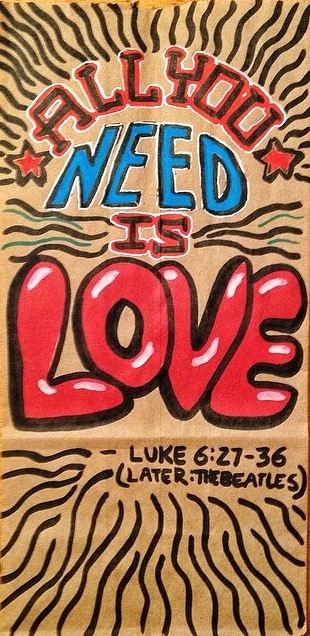 ALL YOU
NEED
IS
LOVE
- LUKE 6:27-36
(LATER: THE BEATLES)